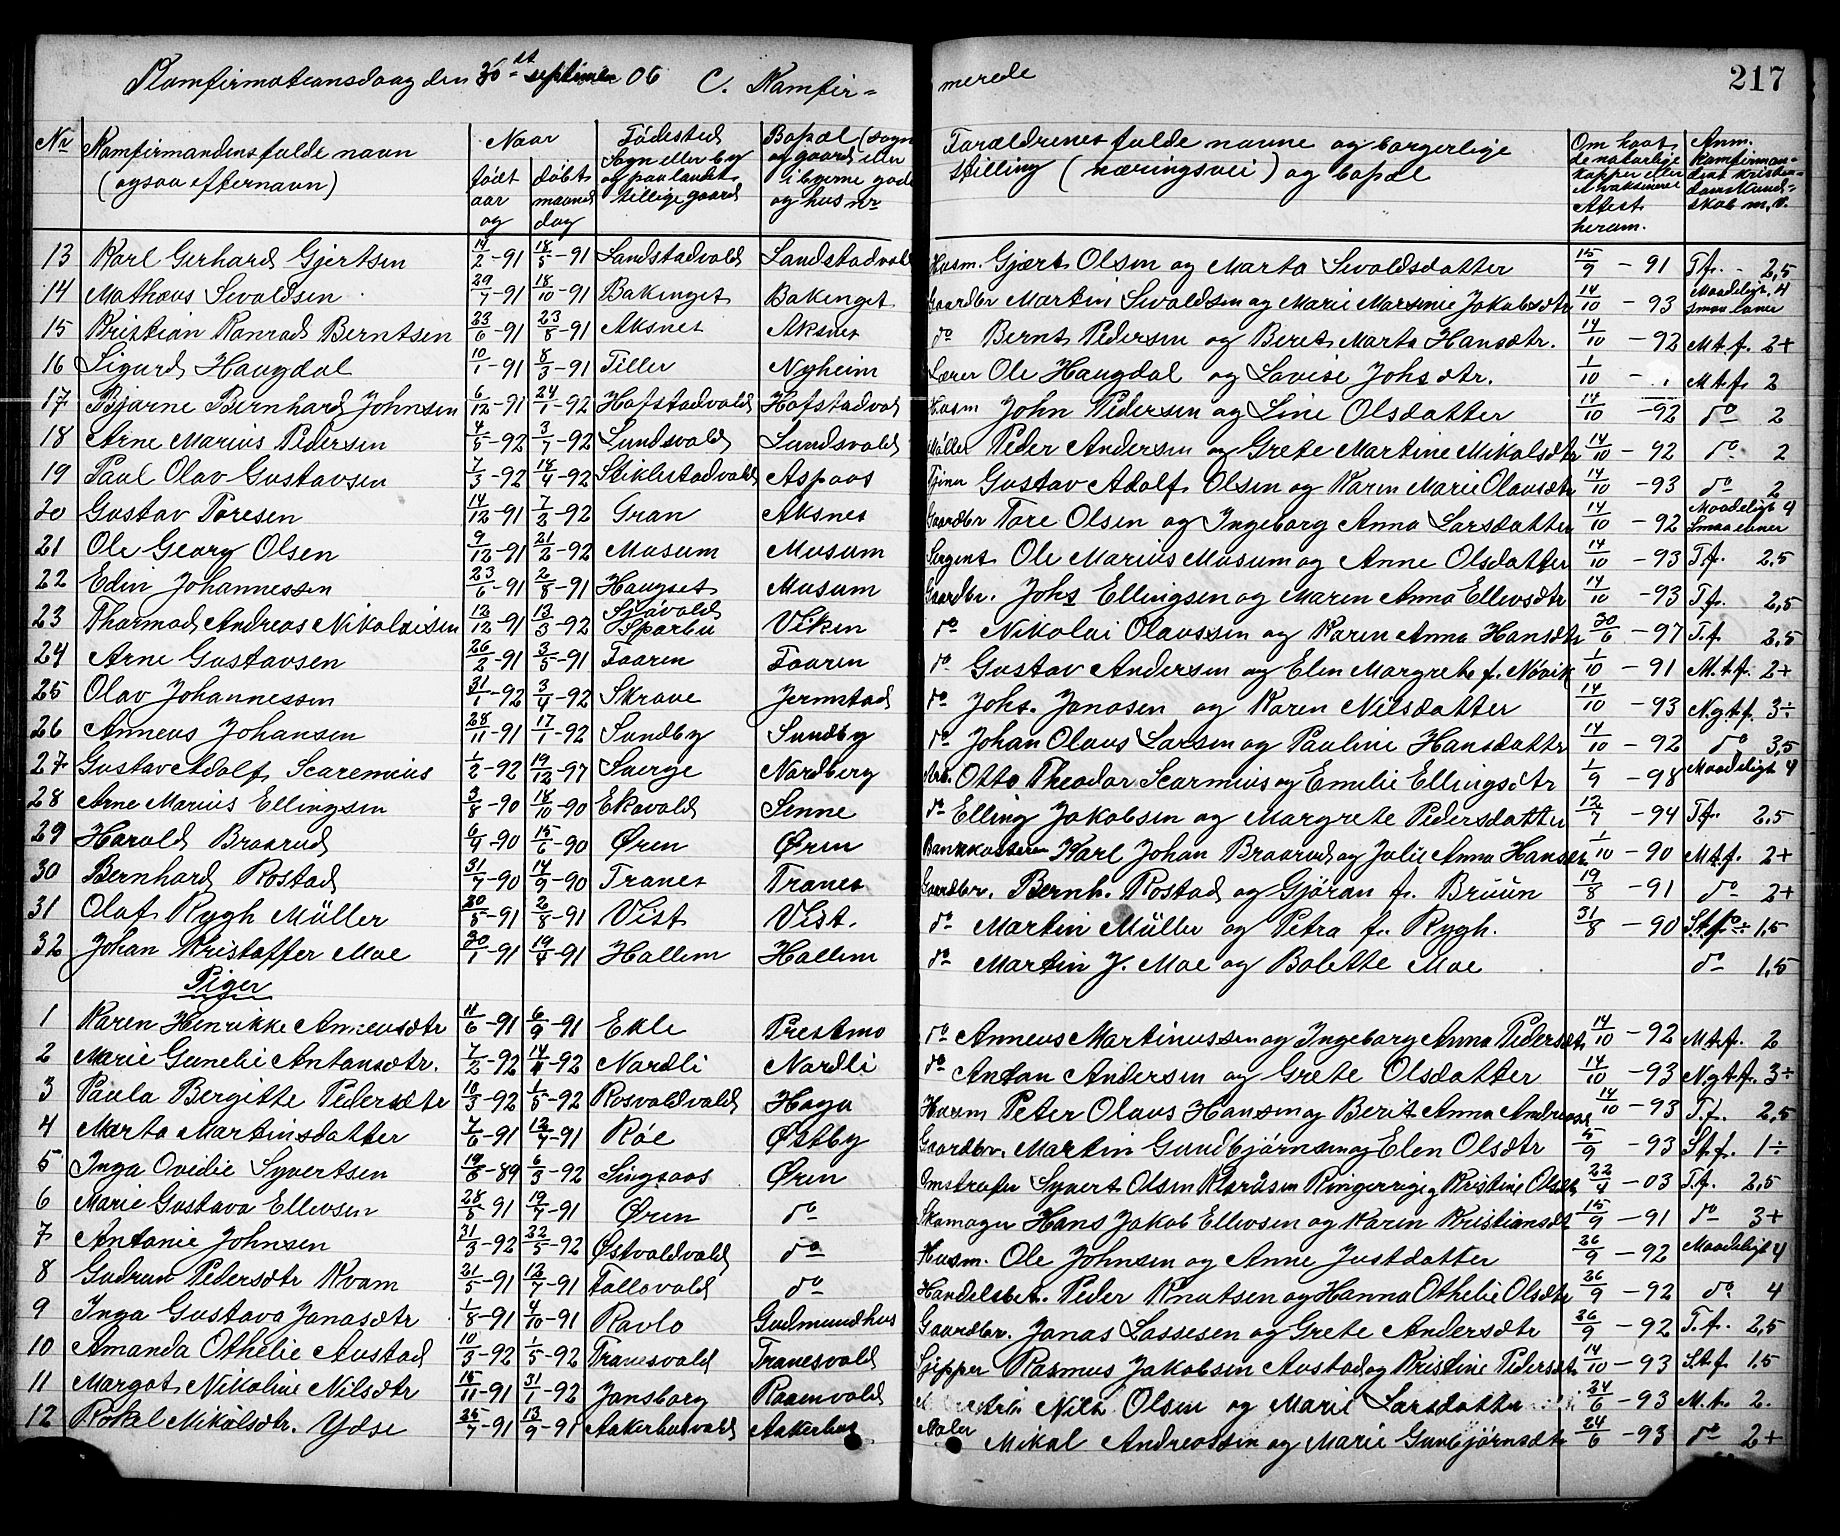 Konfirmationsdag den 30te septimber 06 C. Konfir= merede 217
Nr Konfirmandens fulde navn (ogsaa efternavn) Naar født aar og døbt maaned dag Fødested Sogn eller by og paa landet tillige gaard Bopæl (sogn og gaard eller i byerne gade og hus nr Forældrenes fulde navne og borgerlige stilling (næringsvei) og bopæl Om havt de naturlige kopper eller er vaksineret Attest herom. Anm. Konfirmandens kristendomskundskab m.v.
13 Karl Gerhard Gjertsen 14/2-91 18/5-91 Landstadvald Landstadvald Husm. Gjært Olsen og Marta Sivaldsdatter 15/9 - 91 T.f. - 2,5
14 Mathæus Sivaldsen 29/7-91 18/10-91 Bakenget Bakenget Gaardbr Martin Sivaldsen og Marie Marsinie Jakobsdtr 14/10 - 93 Maadeligt 4 smaa evner
15 Kristian Konrad Berntsen 23/6-91 23/8-91 Aksnes Aksnes do Bernt Pedersen og Beret Marta Hansdtr. 14/10 - 92 M.t.f. 2+
16 Sigurd Haugdal 10/1-91 8/3-91 Tiller Nyheim Lærer Ole Haugdal og Lovise Johsdtr. 1/10 - M.t.f. 2
17 Bjarne Bernhard Johnsen 6/12-91 24/1-92 Hofstadvald Hofstadval Husm John Pedersen og Line Olsdatter 14/10 - 92 do 2
18 Arne Marius Pedersen 4/5-92 3/7-92 Lundsvald Lundsvald Møller Peder Andersen og Grete Martine Mikalsdtr 14/10 - 92 do 2
19 Paul Olav Gustavsen 7/3-92 18/4-92 Stiklestadvald Aspaas Tjener Gustav Adolf Olsen og Karen Marie Olausdtr 14/10 - 93 do 2
20 Gustav Toresen 14/12-91 7/2-92 Gran Aksnes Gaardbr Tore Olsen og Ingeborg Anna Larsdatter 14/10 - 92 Maadeligt 4 Smaa evner
21 Ole Georg Olsen 9/12-91 21/2-92 Musum Musum Sergent Ole Marius Musum og Anne Olsdatter 14/10 - 93 T.f. 2,5
22 Edin Johannessen 23/6-91 2/8-91 Haugset Musum Gaardbr. Johs Ellingsen og Maren Anna Ellevsdtr 14/10 - 93 T.f. 2,5
23 Thormod Andreas Nikolaisen 12/12-91 13/3-92 Sparbu Viken do Nikolai Olaussen og Karen Anna Hansdtr 30/6 - 97 T.f. 2,5
24 Arne Gustavsen 26/2-91 3/5-91 Faaren Faaren do Gustav Andersen og Elen Margrete f. Növik 1/10 - 91 M.t.f. 2+
25 Olav Johannessen 31/1-92 3/4-92 Skrave Jermstad do Johs. Jonasen og Karen Nilsdatter 14/10 - 93 N.g.t.f. 3÷
26 Anneus Johansen 28/11-91 17/1-92 Sundby Sundby do Johan Olaus Larsen og Pauline Hansdatter 14/10 - 92 do 3,5
27 Gustav Adolf Scaremius 1/2-92 19/12-97 Sverge Nordberg Arb. Otto Theodor Scarmius og Emelie Ellingsdtr 1/9 - 98 Maadeligt 4
28 Arne Marius Ellingsen 3/8-90 18/10-90 Ekovald Senne do Elling Jakobsen og Margrete Pedersdatter 12/7 - 94 T.f. 2,5
29 Harald Braarud 6/4-90 15/6-90 Øren Øren Bankkasserer Karl Johan Braarud og Julie Anna Hansdtr 1/10 - 90 M.t.f. 2+
30 Bernhard Rostad 31/7-90 14/9-90 Tranes Tranes Gaardbr. Bernh. Rostad og Gjöran f. Brüün 19/8 - 91 do 2+
31 Olaf Rygh Müller 20/5-91 2/8-91 Vist Vist. do Martin Müller og Petra f. Rygh. 31/8 - 90 St.f. ÷ 1,5
32 Johan Kristoffer Moe 30/1-91 19/4-91 Hallem Hallem do Martin J. Moe og Bolette Moe do 1,5
Piger
1 Karen Henrikke Anneusdtr 11/6-91 6/9-91 Ekle Prestmo do Anneus Martinussen og Ingeborg Anna Pedersdtr 14/10 - 92 M.t.f. 2
2 Marie Gunelie Antonsdtr. 7/2-92 14/4-92 Nordli Nordli do Anton Andersen og Grete Olsdatter 14/10 - 93 N.g.t.f. 3÷
3 Paula Bergitte Pedersdtr 10/3-92 1/5-92 Rosvoldvald Haga Husm Peter Olaus Hansen og Berit Anna Andreasd 14/10 - 93 T.f. 2,5
4 Marta Martinsdatter 7/6-91 12/7-91 Röe Østby Gaardbr. Martin Gundbjörnsen og Elen Olsdtr 5/9 - 93 St.f. 1÷
5 Inga Ovidie Syvertsen 19/8-89 6/3-92 Singsaas Øren Omstreifer Syvert Olsen Klaråsen Ringerrige og Kristine Olsdtr 22/4 - 03 T.f. 2,5
6 Marie Gustava Ellevsen 28/5-91 19/7-91 Øren do Skomager Hans Jakob Ellevsen og Karen Kristiansdtr 15/9 - 91 do 3+
7 Antonie Johnsen 31/3-92 22/5-92 Østvoldvald do Husm. Ole Johnsen og Anne Justdatter 26/9 - 92 Maadeligt 4
8 Gudrun Pedersdtr Kvam 21/5-91 12/7-91 Fallovald do Handelsbet. Peder Knutsen og Hanna Othelie Olsdtr 26/9 - 92 do 4
9 Inga Gustava Jonasdtr 1/8-91 4/10-91 Ravlo Gudmundhus Gaardbr. Jonas Lassesen og Grete Andersdtr 26/9 - 92 T.f. 2,5
10 Amanda Othelie Austad 10/3-92 1/5-92 Tranesvald Tranesvald Skipper Rasmus Jakobsen Austad og Kristine Pedersdtr 14/10 - 93 St.f 1,5
11 Margot Nikoline Nilsdtr 15/11-91 31/1-92 Jonsborg Raaenvald Nils Olsen og Marie Larsdatter 24/6 - 93 M.t. 2.
12 Rakel Mikalsdtr. Ydse 25/7-91 13/9-91 Aakerhusvald Aakerhus Maler Mikal Andreassen og Marie Gunbjörnsdtr 24/6 - 93 do 2+